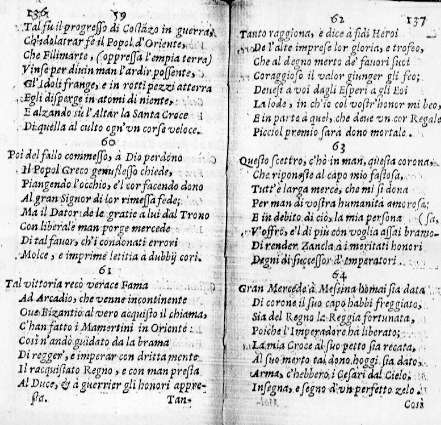 136
59
Tal fù il progresso di Costãzo in guerra,
Ch'idolatrar fè il Popol d'Oriente,
Che Filimarte, (oppressa l'empia terra)
Vinse per diuin man l'ardir possente,
Gl'Idoli frange, e in rotti pezzi atterra
Egli disperge in atomi di niente,
E alzando sù l'Altar la Santa Croce
Di quella al culto ogn'vn corse veloce.
60
Poi del fallo commesso, à Dio perdono
Il Popol Greco genuflesso chiede,
Piangendo l'occhio, e'l cor facendo dono
Al gran Signor di lor rimessa fede;
Ma il Dator de le gratie à lui dal Trono
Con liberale man porge mercede
Di tal fauor, ch'i condonati errori
Molce, e imprime letitia à dubbij cori.
61
Tal vittoria recò verace Fama
Ad Arcadio, che venne incontinente
Oue Bizantio al vero acquisto il chiama,
C'han fatto i Mamertini in Oriente:
Così n'andò guidato da la brama
Di regger, e imperar con dritta mente
Il racquistato Regno, e con man presta
Al Duce, & à guerrier gli honori appre-
sta. Tan-
62
137
Tanto raggiona, e dice à fidi Heroi
De l'alte imprese lor gloria, e trofeo,
Che al degno merto de' fauori suoi
Coraggioso il valor giunger gli feo;
Deuesi à voi dagli Esperi à gli Eoi
La lode, in ch'io col vostr'honor mi beo,
E in parte à quel, che deue vn cor Regale
Picciol premio sarà dono mortale.
63
Questo scettro, c'hò in man, questa corona,
Che riponeste al capo mio fastosa,
Tutt'è larga mercè, che mi si dona
Per man di vostra humanità amorosa;
E in debito di ciò, la mia persona (sa,
V'offrò, e'l di più con voglia assai bramo-
Di render Zancla à i meritati honori
Degni di successor d'Imperatori.
64
Gran Mercede à Messina homai sia data
Di corone il suo capo habbi freggiato,
Sia del Regno la Reggia fortunata,
Poiche l'Imperadore hà liberato;
La mia Croce al suo petto sia recata,
Al suo merto tai dono hoggi sia dato,
Arma, c'hebbero i Cesari dal Cielo,
Insegna, e segno d'vn perfetto zelo.
Così